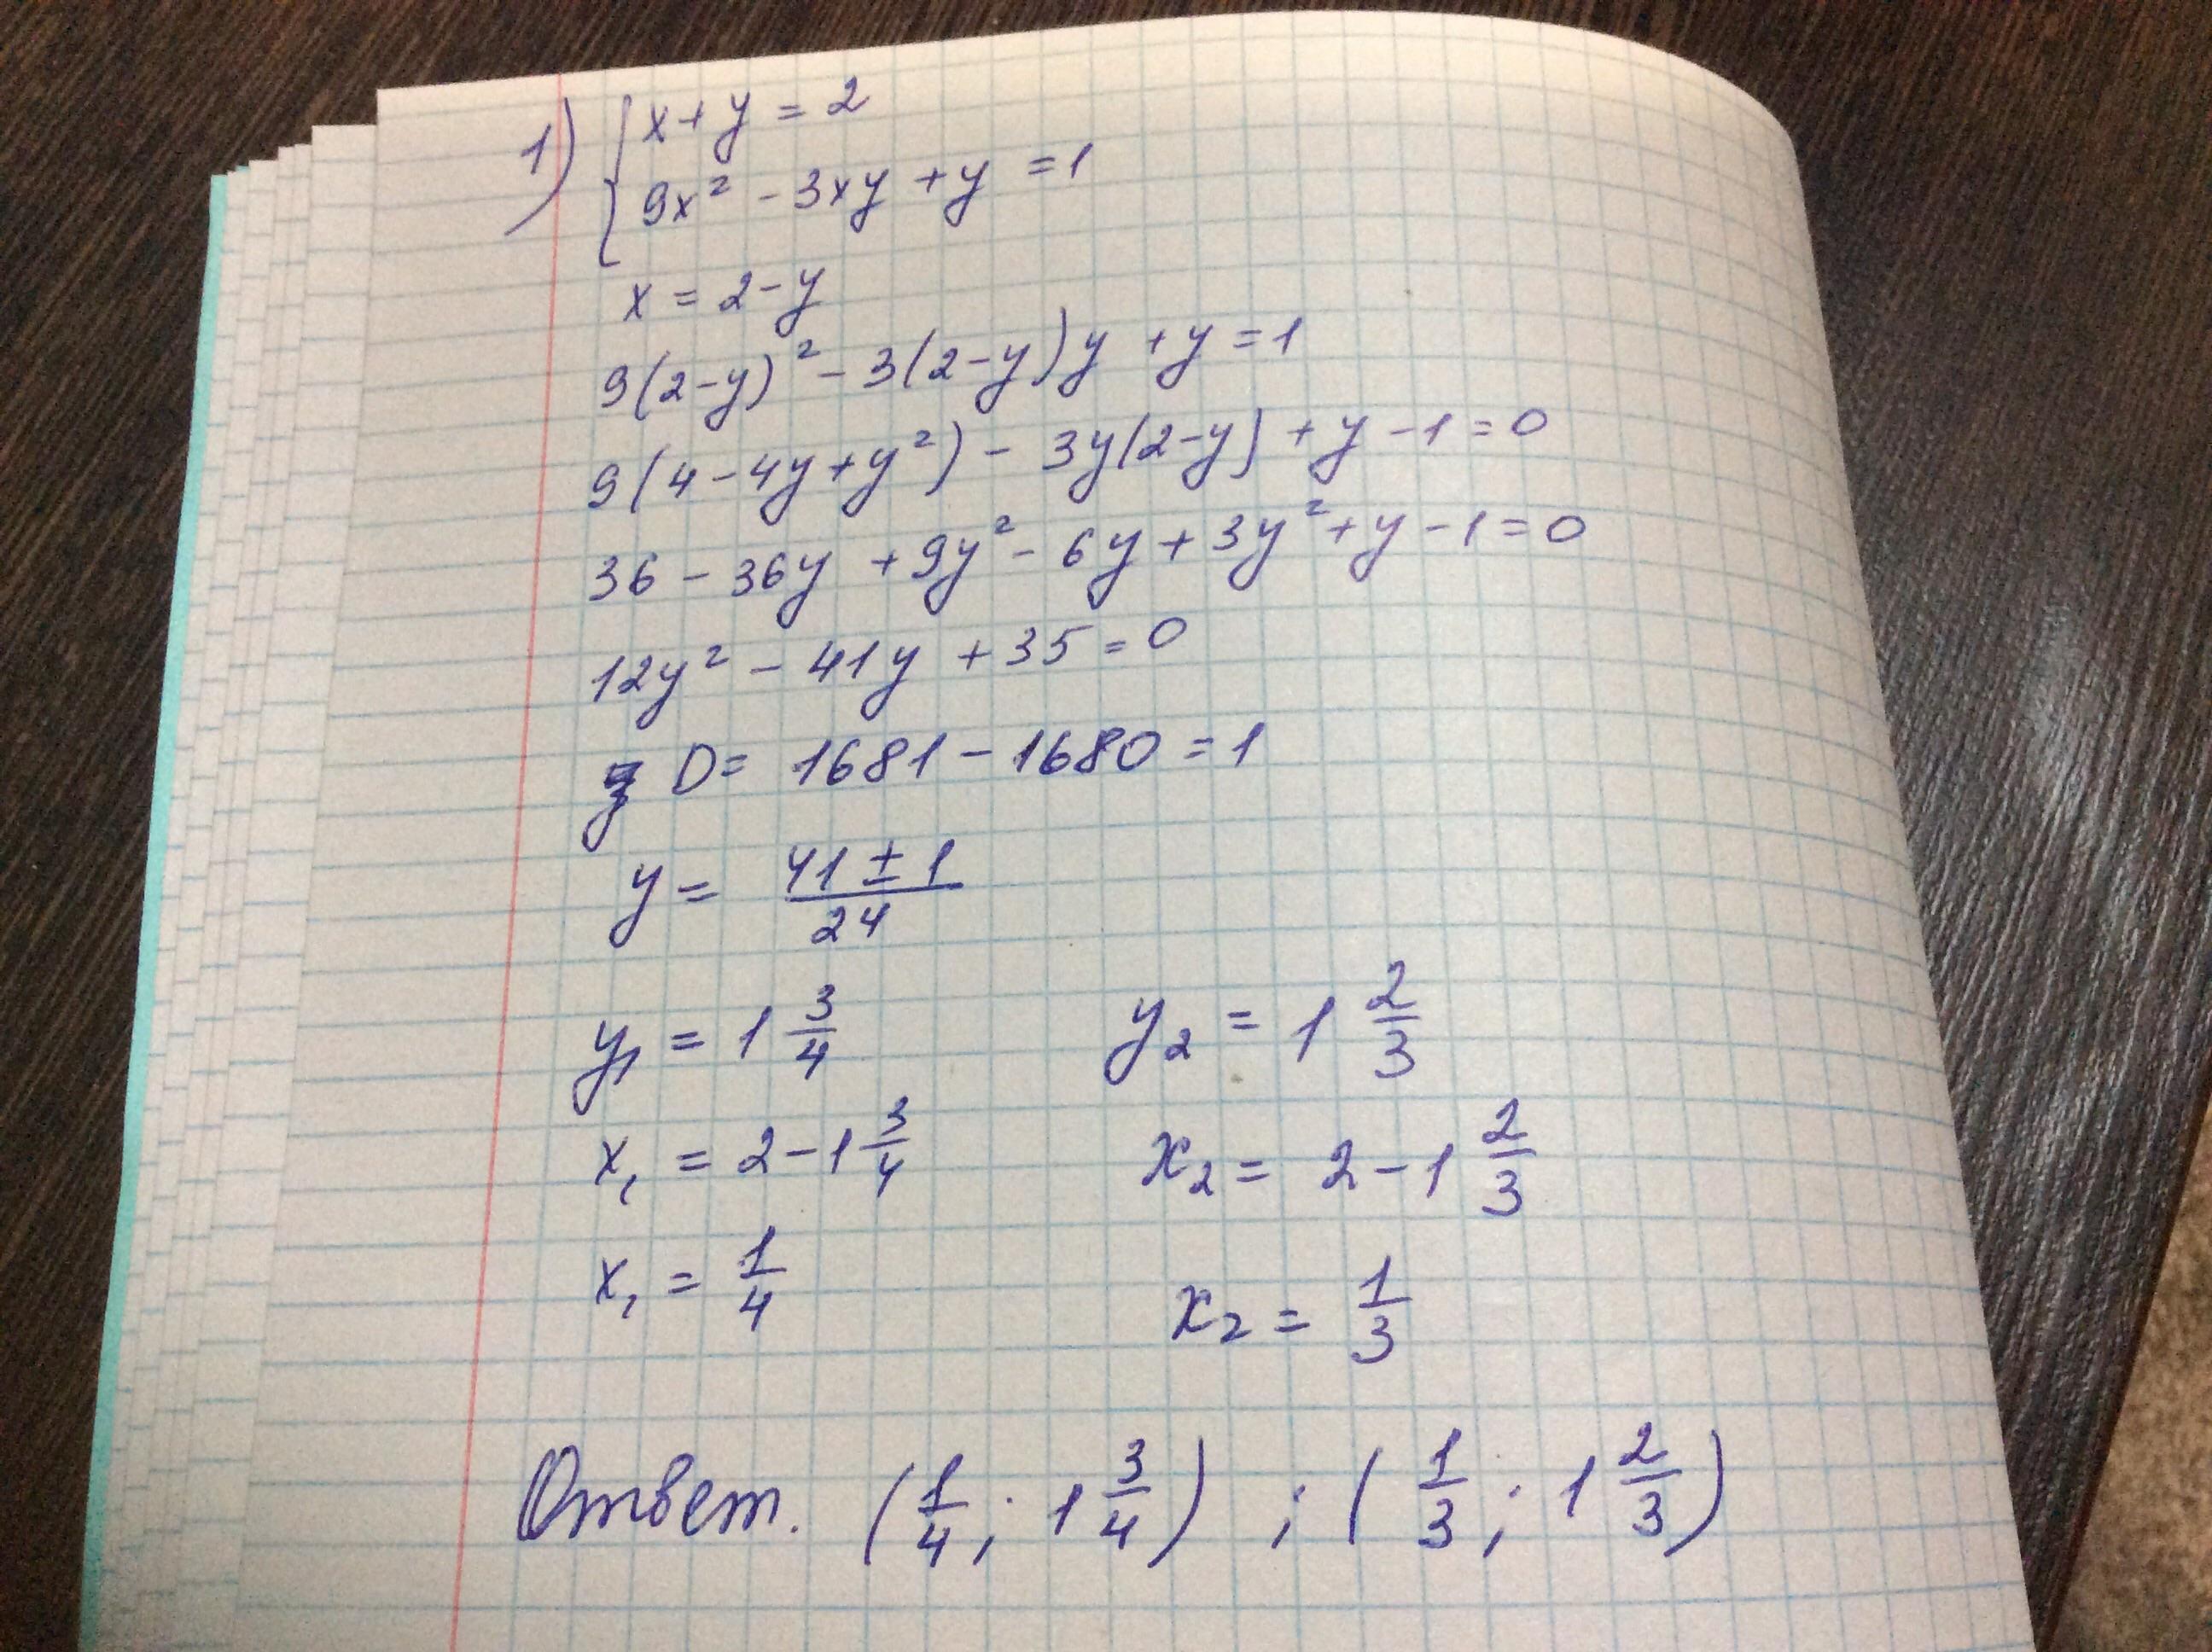 1) { x + y = 2
9x² - 3xy + y = 1
x = 2 - y
9(2-y)² - 3(2-y)y + y = 1
9(4 - 4y + y²) - 3y(2-y) + y - 1 = 0
36 - 36y + 9y² - 6y + 3y² + y - 1 = 0
12y² - 41y + 35 = 0
D = 1681 - 1680 = 1
y = (41 ± 1)/24
y₁ = 1 3/4 y₂ = 1 2/3
x₁ = 2 - 1 3/4 x₂ = 2 - 1 2/3
x₁ = 1/4 x₂ = 1/3
Ответ. (1/4; 1 3/4) ; (1/3; 1 2/3)